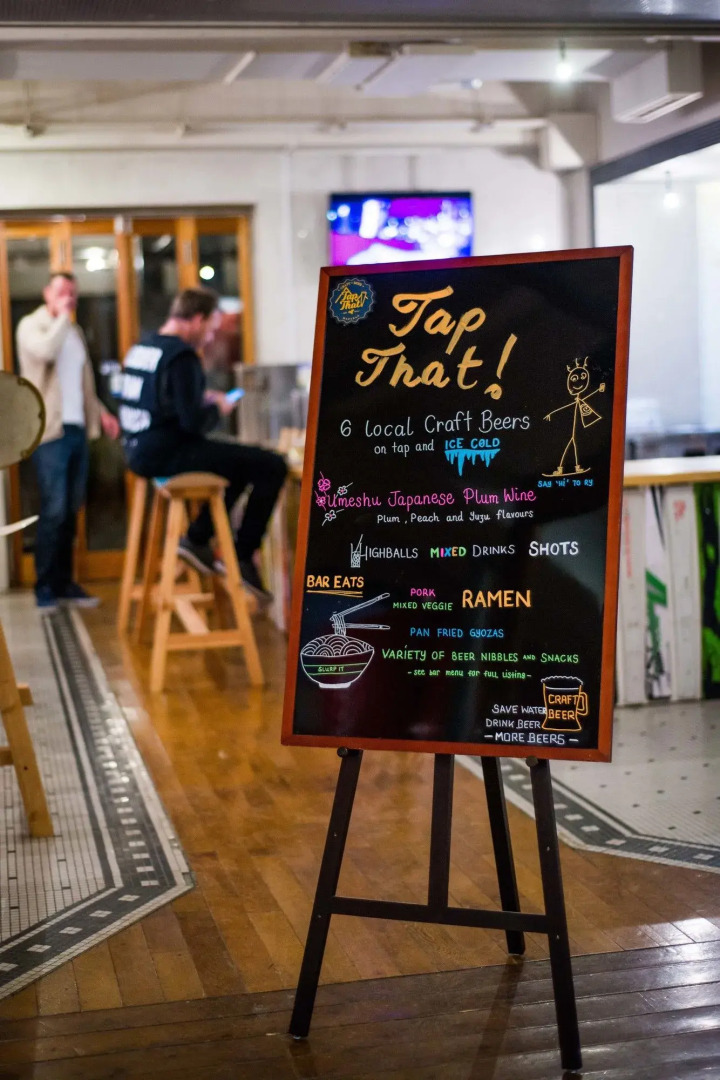 Tap
That!
Tap
That!
6 local Craft Beers
on tap and ICE COLD
SAY "HI" TO RY
Umeshu Japanese Plum Wine
Plum, Peach and Yuzu flavours
HIGHBALLS MIXED DRINKS SHOTS
BAR EATS
PORK
MIXED VEGGIE RAMEN
PAN FRIED GYOZAS
SLURP IT
VARIETY OF BEER NIBBLES AND SNACKS
- see bar menu for full listing -
CRAFT
BEER
SAVE WATER
DRINK BEER
- MORE BEERS -